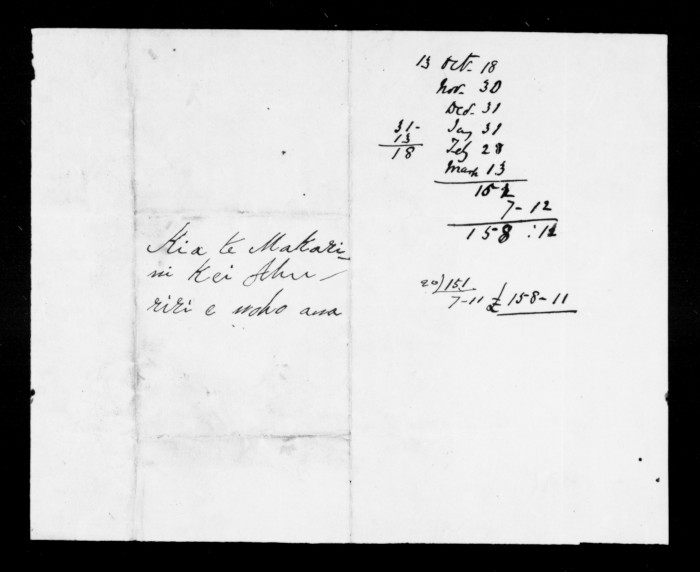 Kia te Makari-
ni Kei Ahu-
riri e noho ana
13 Oct. 18
Nov. 30
Dec. 31
Jany 31
Feby 28
March 13
31-
13
18
152
7-12
158:12
20)151
7-11
£158-11